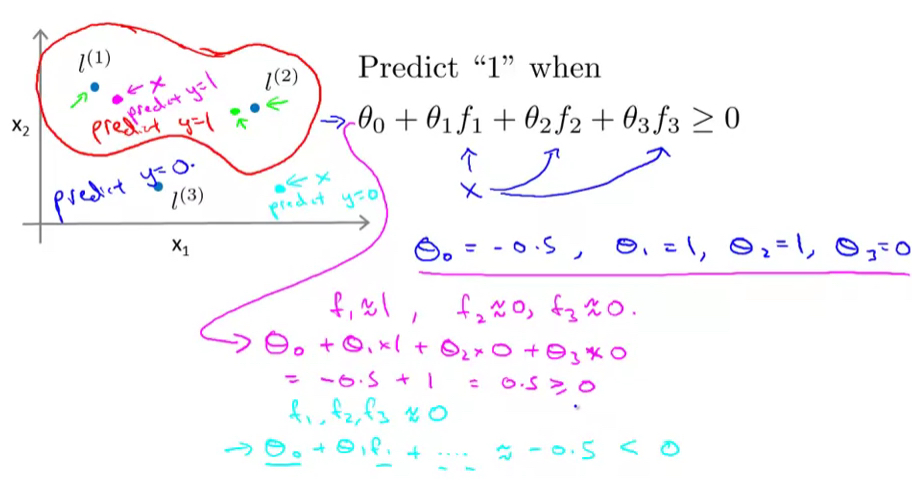 l⁽¹⁾
← x
predict y=1
l⁽²⁾
predict y=1
x₂
predict y=0.
l⁽³⁾
← x
predict y=0
x₁
Predict “1” when
θ₀ + θ₁f₁ + θ₂f₂ + θ₃f₃ ≥ 0
x
θ₀ = -0.5, θ₁ = 1, θ₂ = 1, θ₃ = 0
f₁ ≈ 1, f₂ ≈ 0, f₃ ≈ 0.
→ θ₀ + θ₁ × 1 + θ₂ × 0 + θ₃ × 0
= -0.5 + 1 = 0.5 ≥ 0
f₁, f₂, f₃ ≈ 0
→ θ₀ + θ₁f₁ + .... ≈ -0.5 < 0